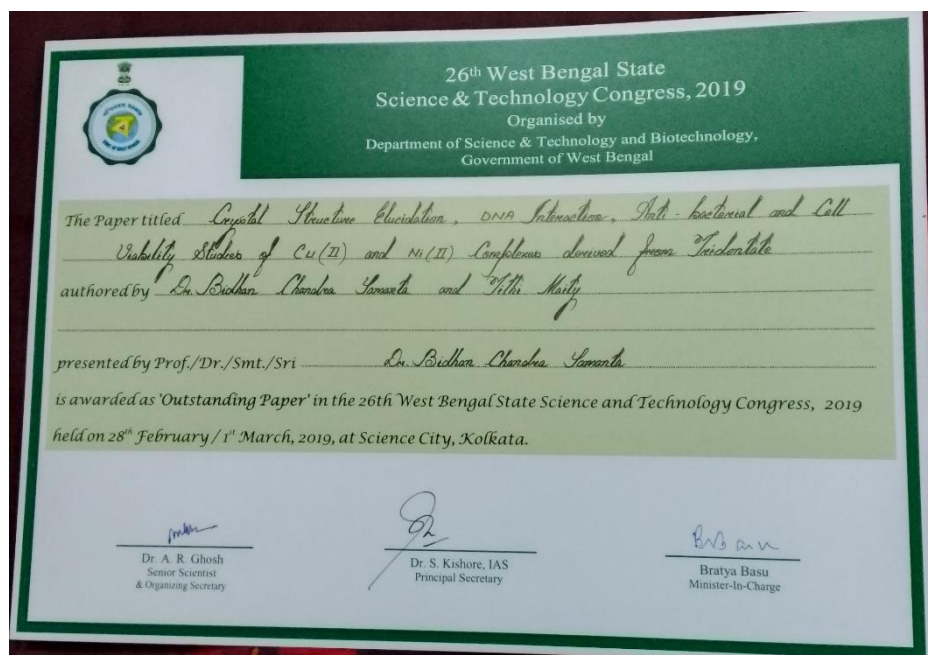 26th West Bengal State
Science & Technology Congress, 2019
Organised by
Department of Science & Technology and Biotechnology,
Government of West Bengal
The Paper titled Crystal Structure Elucidation, DNA Interaction, Anti-bacterial and Cell
Viability Studies of Cu(II) and Ni(II) Complexes derived from Tridentate
authored by Dr. Bidhan Chandra Samanta and Tithi Maity
presented by Prof./Dr./Smt./Sri Dr. Bidhan Chandra Samanta
is awarded as 'Outstanding Paper' in the 26th West Bengal State Science and Technology Congress, 2019
held on 28th February / 1st March, 2019, at Science City, Kolkata.
Dr. A. R. Ghosh
Senior Scientist
& Organizing Secretary
Dr. S. Kishore, IAS
Principal Secretary
Bratya Basu
Minister-In-Charge